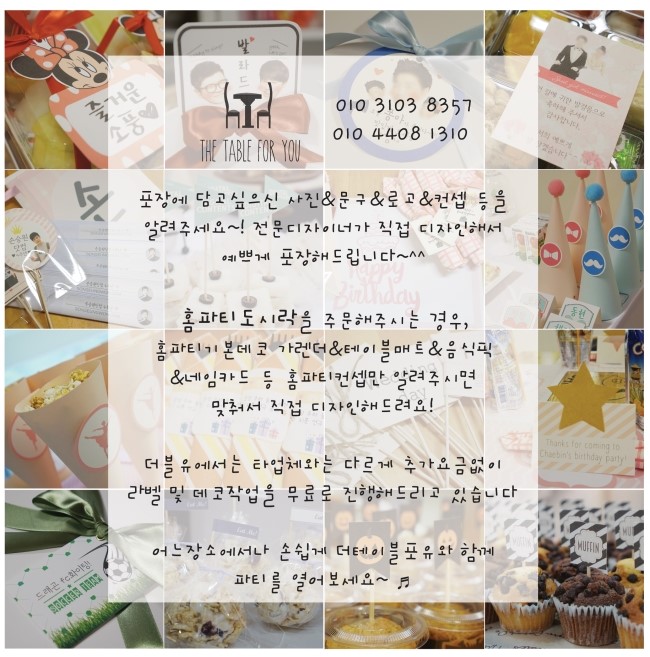 즐거운
소풍♥
발
라
드
THE TABLE FOR YOU
010 3103 8357
010 4408 1310
포장에 담고싶으신 사진&문구&로고&컨셉 등을
알려주세요~! 전문디자이너가 직접 디자인해서
예쁘게 포장해드립니다~^^
Happy
Birthday
홈파티도시락을 주문해주시는 경우,
홈파티기본데코 가렌더&테이블매트&음식픽
&네임카드 등 홈파티컨셉만 알려주시면
맞춰서 직접 디자인해드려요!
Thanks for coming to
Chaebin's birthday party!
더블유에서는 타업체와는 다르게 추가요금없이
라벨 및 데코작업을 무료로 진행해드리고 있습니다
어느장소에서나 손쉽게 더테이블포유와 함께
파티를 열어보세요~ ♬
MUFFIN